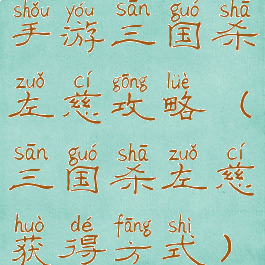 shǒu yóu sān guó shā
手游三国杀
zuǒ cí gōng lüè
左慈攻略（
sān guó shā zuǒ cí
三国杀左慈
huò dé fāng shì
获得方式）